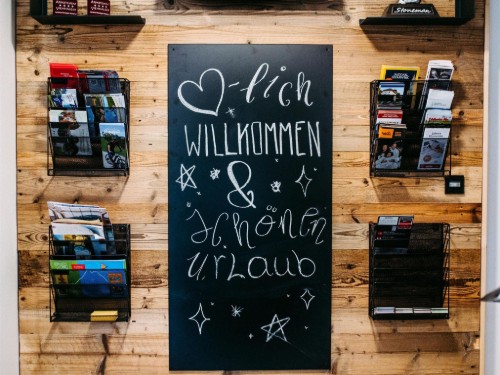 Stoneman
♡-lich
WILLKOMMEN
&
Schönen
Urlaub